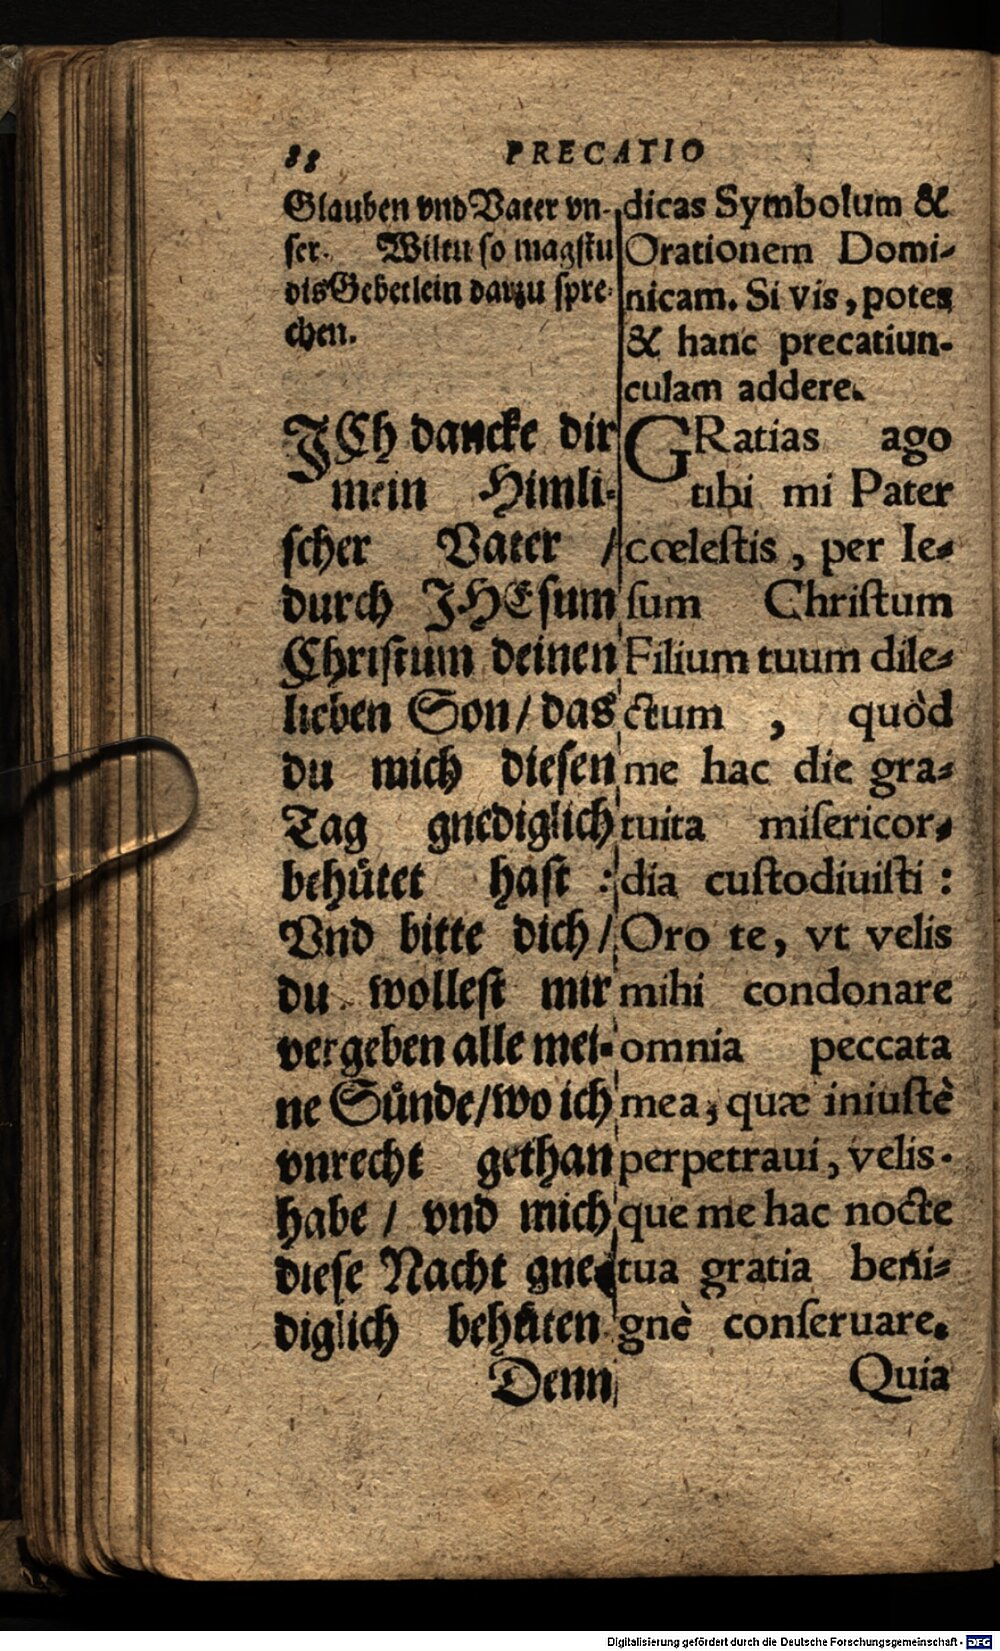 88 PRECATIO
Glauben vnd Vater vn-
ser. Wiltu so magstu
dis Gebetlein darzu spre-
chen.
ICh dancke dir
mein Himli-
scher Vater /
durch JHEsum
Christum deinen
lieben Son / das
du mich diesen
Tag gnediglich
behütet hast :
Vnd bitte dich /
du wollest mir
vergeben alle mei-
ne Sünde / wo ich
vnrecht gethan
habe / vnd mich
diese Nacht gne-
diglich behüten
Denn
dicas Symbolum &
Orationem Domi-
nicam. Si vis, potes
& hanc precatiun-
culam addere.
GRatias ago
tibi mi Pater
cœleſtis, per Ie-
ſum Chriſtum
Filium tuum dile-
ctum, quòd
me hac die gra-
tuita miſericor-
dia cuſtodiuiſti :
Oro te, vt velis
mihi condonare
omnia peccata
mea, quæ iniuſtè
perpetraui, velis-
que me hac nocte
tua gratia beni-
gnè conſeruare.
Quia
Digitalisierung gefördert durch die Deutsche Forschungsgemeinschaft - DFG